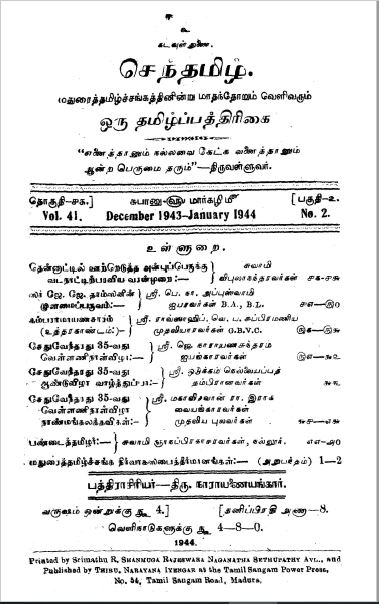 உ
கடவுள் துணை.
செந்தமிழ்.
மதுரைத்தமிழ்ச்சங்கத்தினின்று மாதந்தோறும் வெளிவரும்
ஒரு தமிழ்ப்பத்திரிகை
“எனைத்தானும் நல்லவை கேட்க வனைத்தானும்
ஆன்ற பெருமை தரும்”—திருவள்ளுவர்.
தொகுதி-சக.] சுபானு௵ மார்கழி௴ [பகுதி-உ.
Vol. 41. December 1943-January 1944 No. 2.
உள்ளுறை.
தென்னாட்டில் ஊற்றெடுத்த அன்புப்பெருக்கு சுவாமி
வடநாட்டிற்பரவிய வரன்முறை:— விபுலாநந்தரவர்கள்
ஸர் ஜே. ஜே. தாம்ஸனின் ஸ்ரீ. பெ. நா. அப்புஸ்வாமி
ஐயரவர்கள் B.A., B.L. ௪௭—௫௦
கம்பராமாயணசாரம் ஸ்ரீ. ராவ்ஸாஹிப். வெ. ப. சுப்பிரமணிய
(உத்தரகாண்டம்:)- முதலியாரவர்கள் G.B.V.C.
சேதுவேந்தரது 35-வது ஸ்ரீ. ஜெ. நாராயணசுந்தரம
வெள்ளணிநாள்விழா:— ஐயங்காரவர்கள்
சேதுவேந்தரது 35-வது ஸ்ரீ. ஒடுக்கம் செல்லையப்பத்
ஆண்டுவிழா வாழ்த்துப்பா:— தம்பிரானவர்கள்
சேதுவேந்தரது 35-வது ஸ்ரீ. மகாவித்வான் ரா. இராக
வெள்ளணிநாள்விழா வையங்காரவர்கள்
நாண்மங்கலக்கவிகள்:— முதலிய புலவர்கள்
பண்டைத்தமிழர்:— சுவாமி ஞானப்பிரகாசரவர்கள், நல்லூர். எஎ-அ௦
மதுரைத்தமிழ்ச்சங்க நிர்வாகஸபைத்தீர்மானங்கள்:— (அநுபந்தம்) 1—2
பத்திராசிரியர்—திரு. நாராயணையங்கார்.
வருஷம் ஒன்றுக்கு ரூ 4.] [தனிப்பிரதி அணா—8.
வெளிநாடுகளுக்கு ரூ 4—8—0.
1944.
Printed by Srimathu R. Shanmuga Rajeswara Naganatha Sethupathy Avl., and
Published by Thiru. Narayana Iyengar at the Tamil Sangam Power Press,
No. 54, Tamil Sangam Road, Madura.